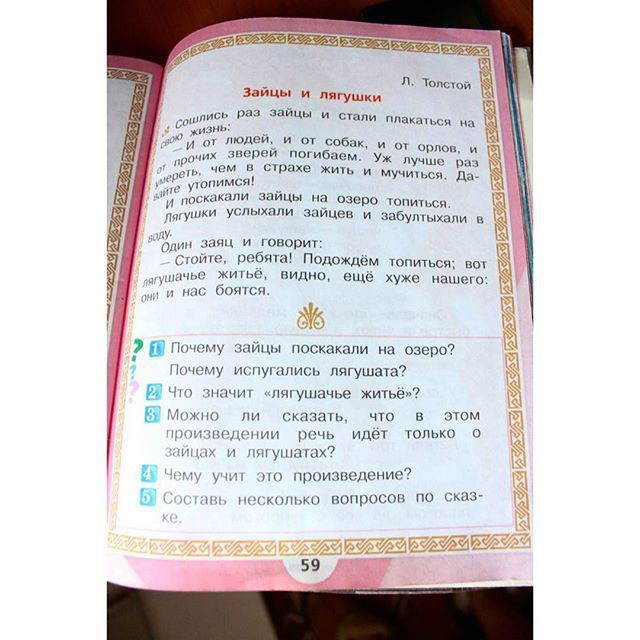 Л. Толстой
Зайцы и лягушки
Сошлись раз зайцы и стали плакаться на
свою жизнь:
— И от людей, и от собак, и от орлов, и
от прочих зверей погибаем. Уж лучше раз
умереть, чем в страхе жить и мучиться. Да-
вайте утопимся!
И поскакали зайцы на озеро топиться.
Лягушки услыхали зайцев и забултыхали в
воду.
Один заяц и говорит:
— Стойте, ребята! Подождём топиться; вот
лягушачье житьё, видно, ещё хуже нашего:
они и нас боятся.
? 1 Почему зайцы поскакали на озеро?
? Почему испугались лягушата?
? 2 Что значит «лягушачье житьё»?
3 Можно ли сказать, что в этом
произведении речь идёт только о
зайцах и лягушатах?
4 Чему учит это произведение?
5 Составь несколько вопросов по сказ-
ке.
59